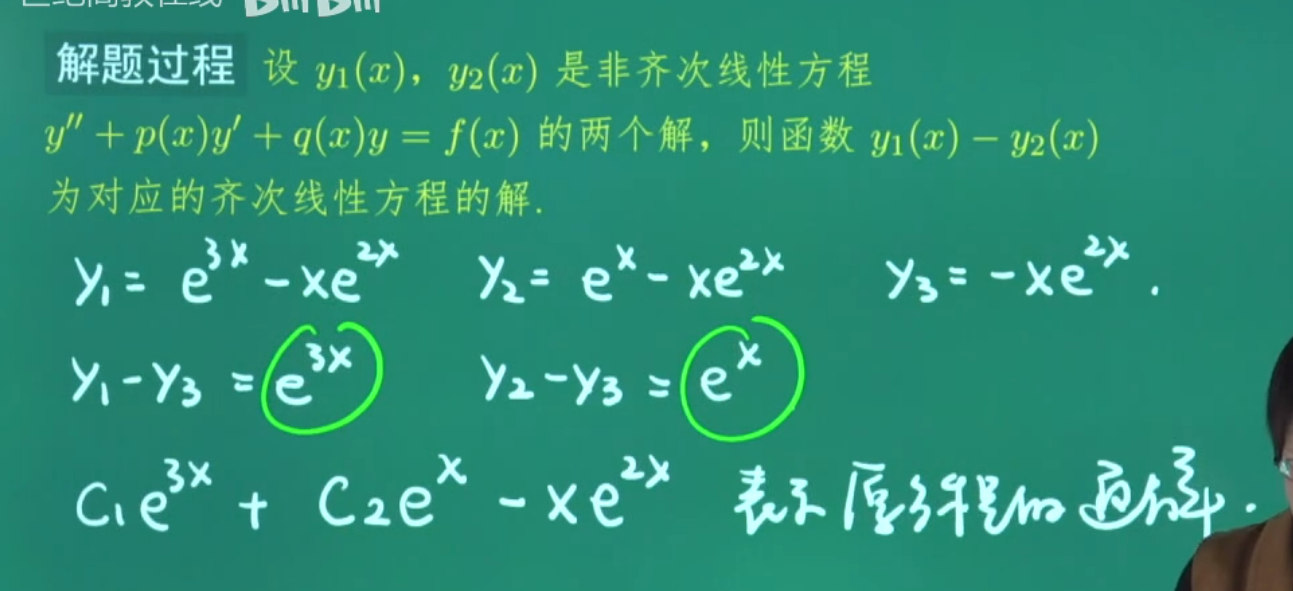 BiliBili
解题过程 设 y₁(x)，y₂(x) 是非齐次线性方程
y″ + p(x)y′ + q(x)y = f(x) 的两个解，则函数 y₁(x) − y₂(x)
为对应的齐次线性方程的解.
y₁ = e^{3x} − xe^{2x} y₂ = e^{x} − xe^{2x} y₃ = −xe^{2x}.
y₁ − y₃ = e^{3x} y₂ − y₃ = e^{x}
C₁e^{3x} + C₂e^{x} − xe^{2x} 表示原方程的通解.